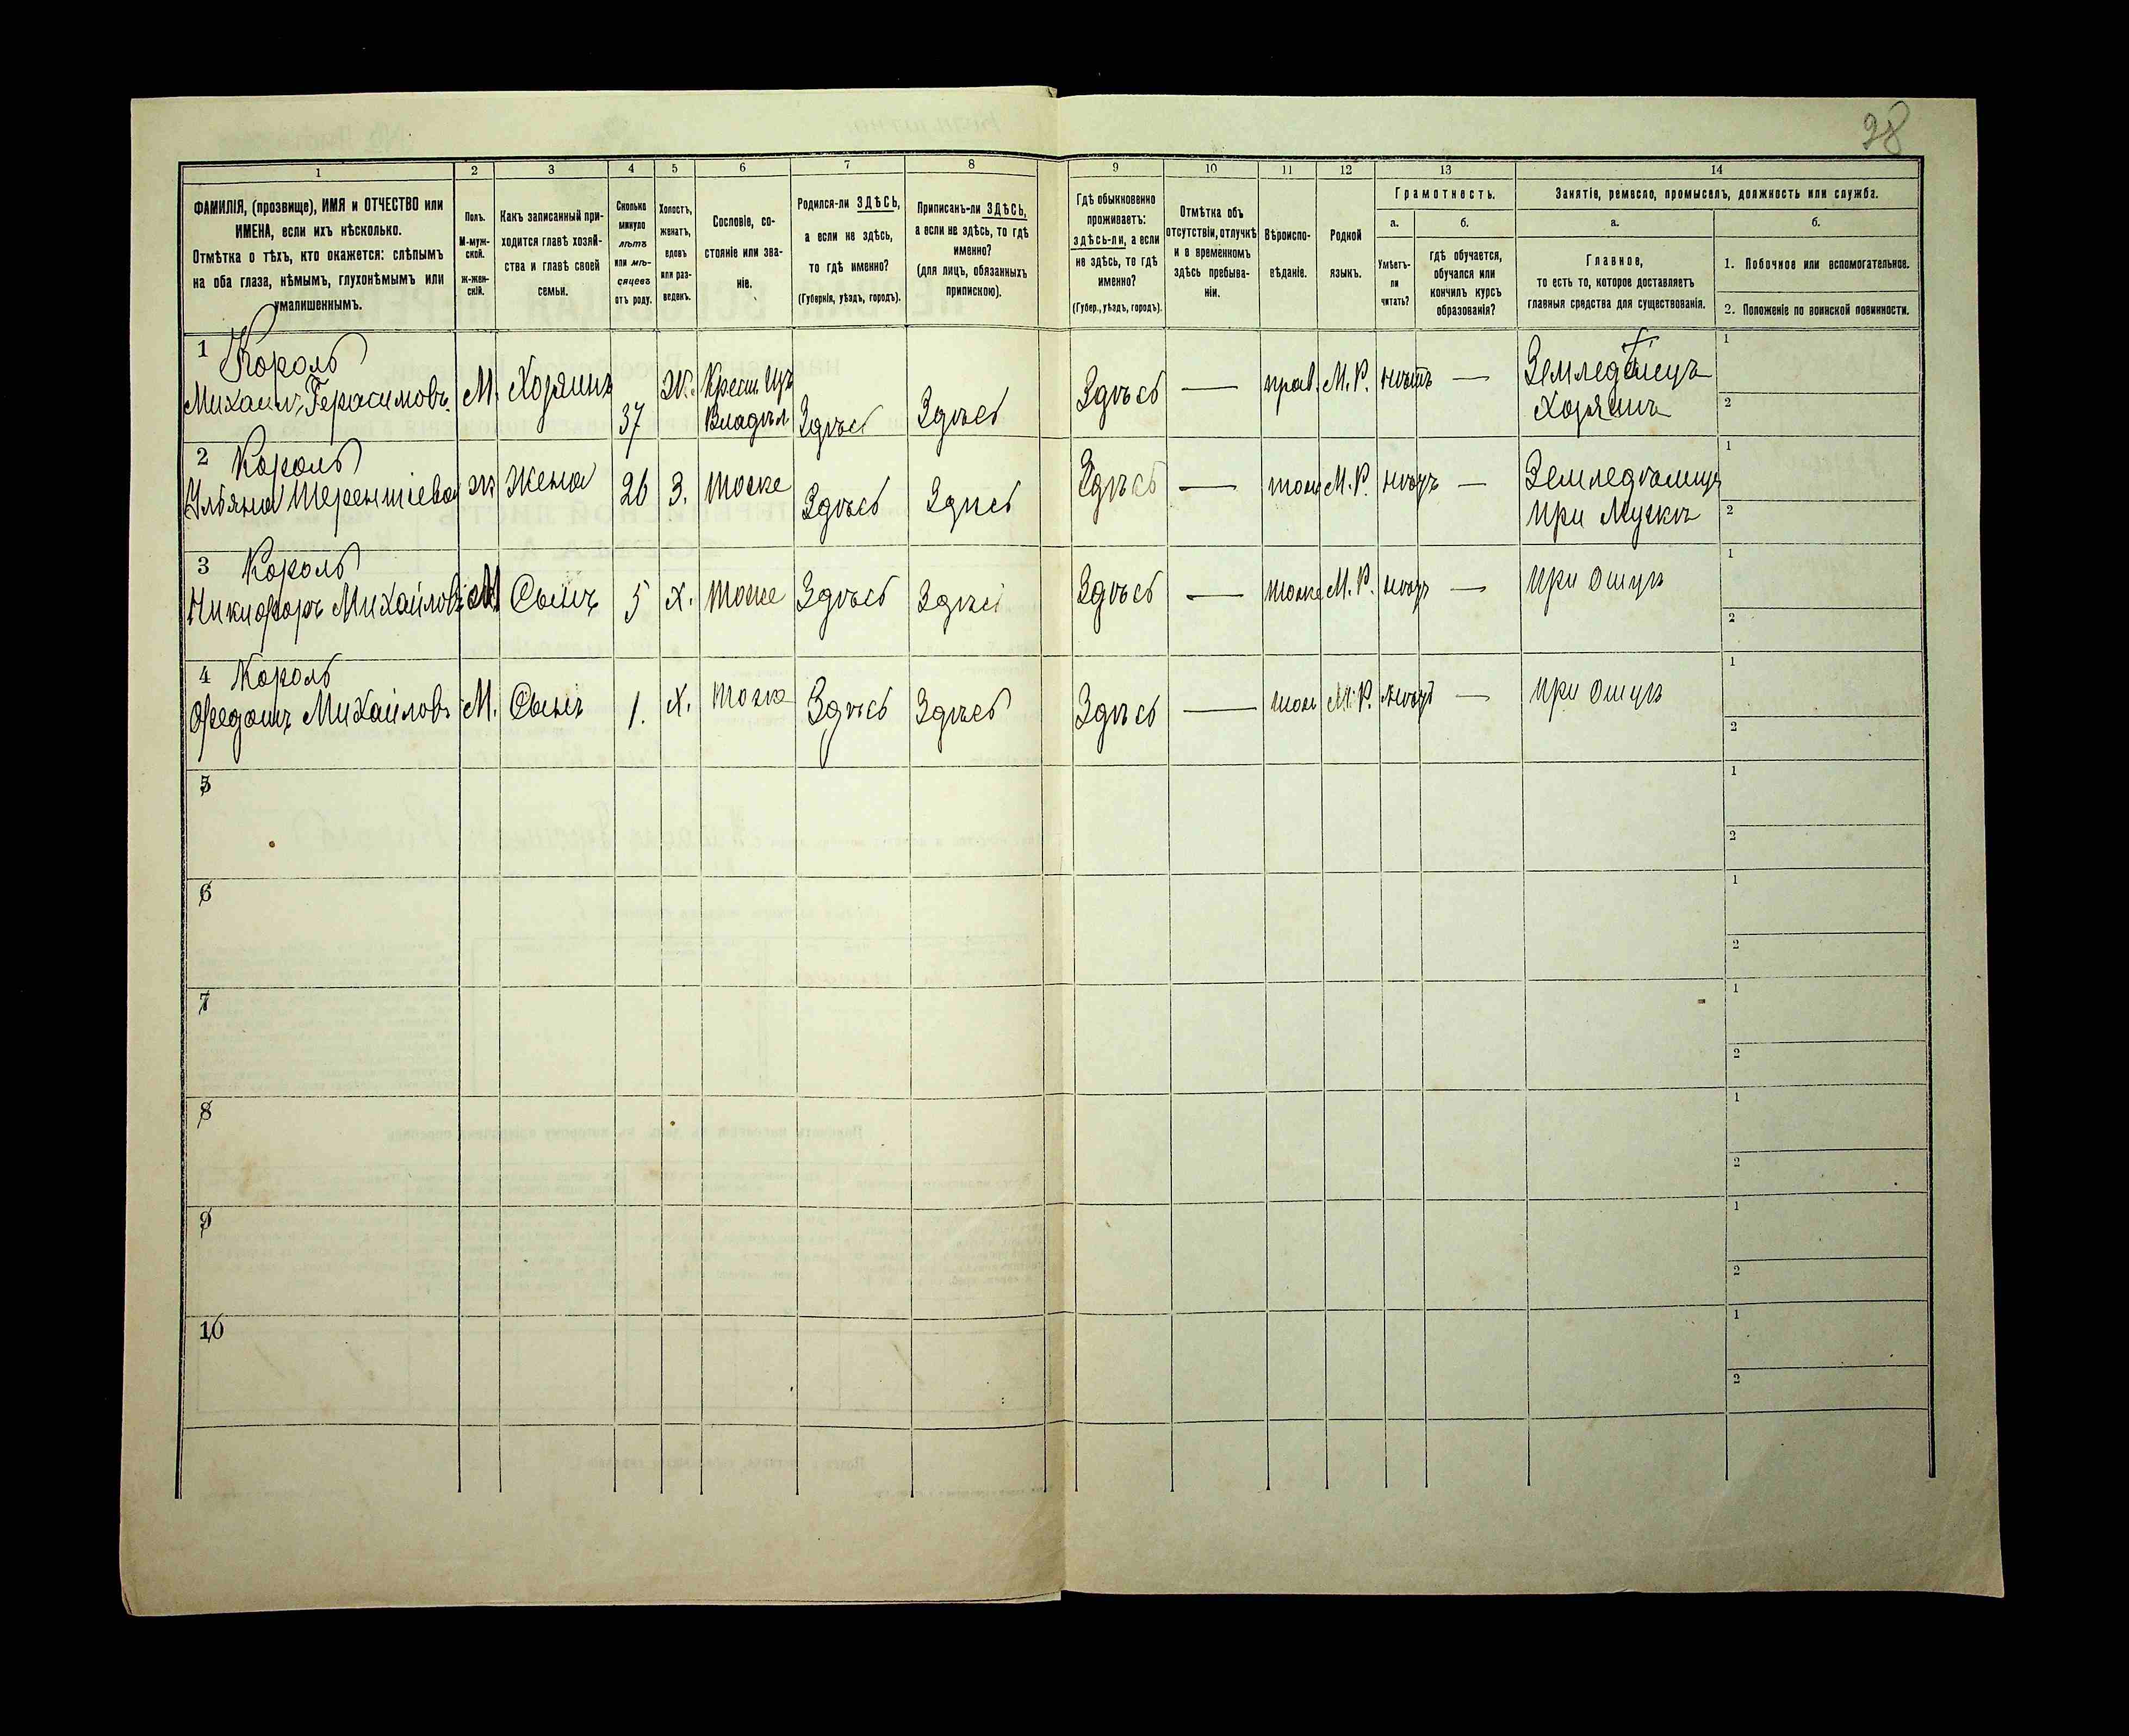 38
1 2 3 4 5 6 7 8 9 10 11 12 13 14
ФАМИЛІЯ, (прозвище), ИМЯ и ОТЧЕСТВО или
ИМЕНА, если ихъ нѣсколько.
Отмѣтка о тѣхъ, кто окажется: слѣпымъ
на оба глаза, нѣмымъ, глухонѣмымъ или
умалишеннымъ.
Полъ.
М-муж-
ской.
ж-жен-
скій.
Какъ записанный при-
ходится главѣ хозяй-
ства и главѣ своей
семьи.
Сколько
минуло
лѣтъ
или мѣ-
сяцевъ
отъ роду.
Холостъ,
женатъ,
вдовъ
или раз-
веденъ.
Сословіе, со-
стояніе или зва-
ніе.
Родился-ли ЗДѢСЬ,
а если не здѣсь,
то гдѣ именно?
(Губернія, уѣздъ, городъ).
Приписанъ-ли ЗДѢСЬ,
а если не здѣсь, то гдѣ
именно?
(для лицъ, обязанныхъ
припискою).
Гдѣ обыкновенно
проживаетъ:
здѣсь-ли, а если
не здѣсь, то гдѣ
именно?
(Губер., уѣздъ, городъ).
Отмѣтка объ
отсутствіи, отлучкѣ
и о временномъ
здѣсь пребыва-
ніи.
Вѣроиспо-
вѣданіе.
Родной
языкъ.
Грамотность.
а.
Умѣетъ-
ли
читать?
б.
гдѣ обучается,
обучался или
кончилъ курсъ
образованія?
Занятіе, ремесло, промыселъ, должность или служба.
а.
Главное,
то есть то, которое доставляетъ
главныя средства для существованія.
б.
1. Побочное или вспомогательное.
2. Положеніе по воинской повинности.
1 Король
Михаил Герасимовъ М. Хозяинъ 37 Ж. Крест. изъ
Владѣл Здѣсь Здѣсь Здѣсь — прав. М. Р. нѣтъ — Земледѣлецъ
Хозяинъ
1
2
2 Король
Ульяна Терентіева ж Жена 26 З. тоже Здѣсь Здѣсь Здѣсь — тоже М. Р. нѣтъ — Земледѣлица
при Мужѣ
1
2
3 Король
Никифоръ Михайловъ М Сынъ 5 Х. тоже Здѣсь Здѣсь Здѣсь — тоже М. Р. нѣтъ — при Отцѣ
1
2
4 Король
Федотъ Михайловъ М. Сынъ 1. Х. тоже Здѣсь Здѣсь Здѣсь — тоже М. Р. нѣтъ — при Отцѣ
1
2
5
1
2
6
1
2
7
1
2
8
1
2
9
1
2
10
1
2